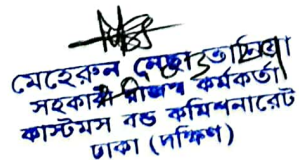 মেহেরুন নেছা
সহকারী রাজস্ব কর্মকর্তা
কাস্টমস বন্ড কমিশনারেট
ঢাকা (দক্ষিণ)